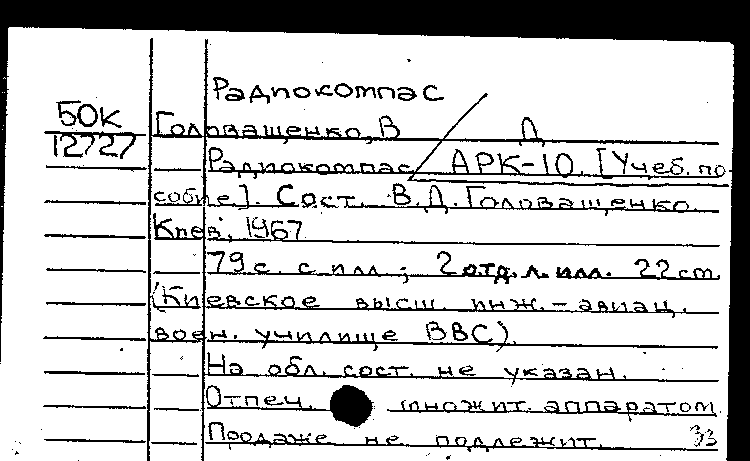 Радиокомпас
50К
12727
Головащенко, В Д
Радиокомпас АРК-10. [Учеб. по-
собие]. Сост. В.Д. Головащенко.
Киев, 1967
79 с. с илл.; 2 отд. л. илл. 22 см
(Киевское высш. инж.-авиац.
воен. училище ВВС).
На обл. сост. не указан.
Отпеч. множит. аппаратом
Продаже не подлежит.
33